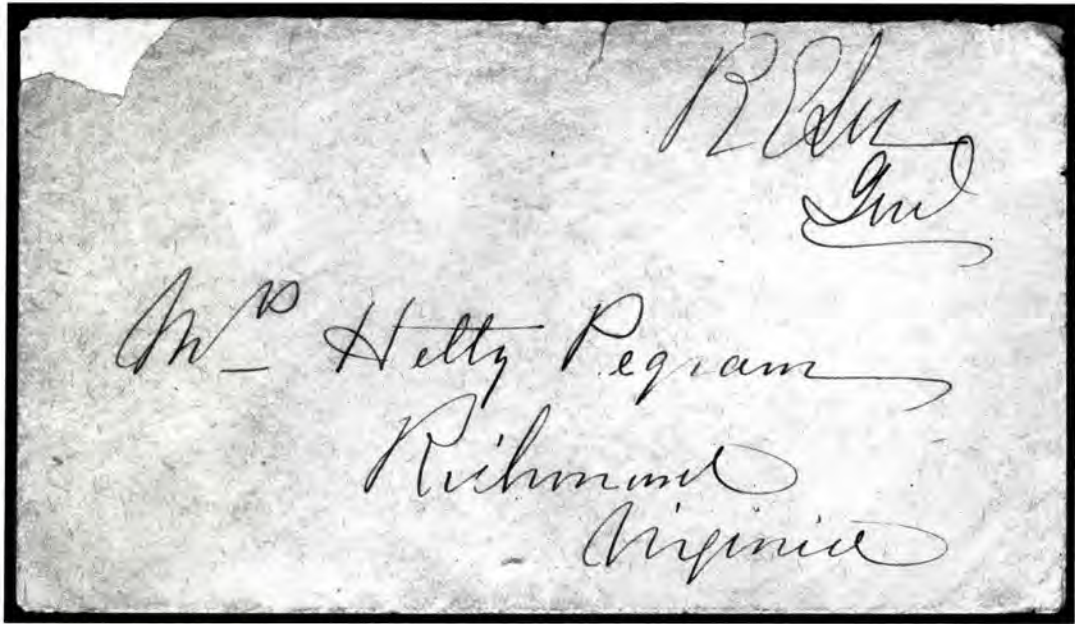 R E Lee
Genl
Mrs Hetty Pegram
Richmond
Virginia